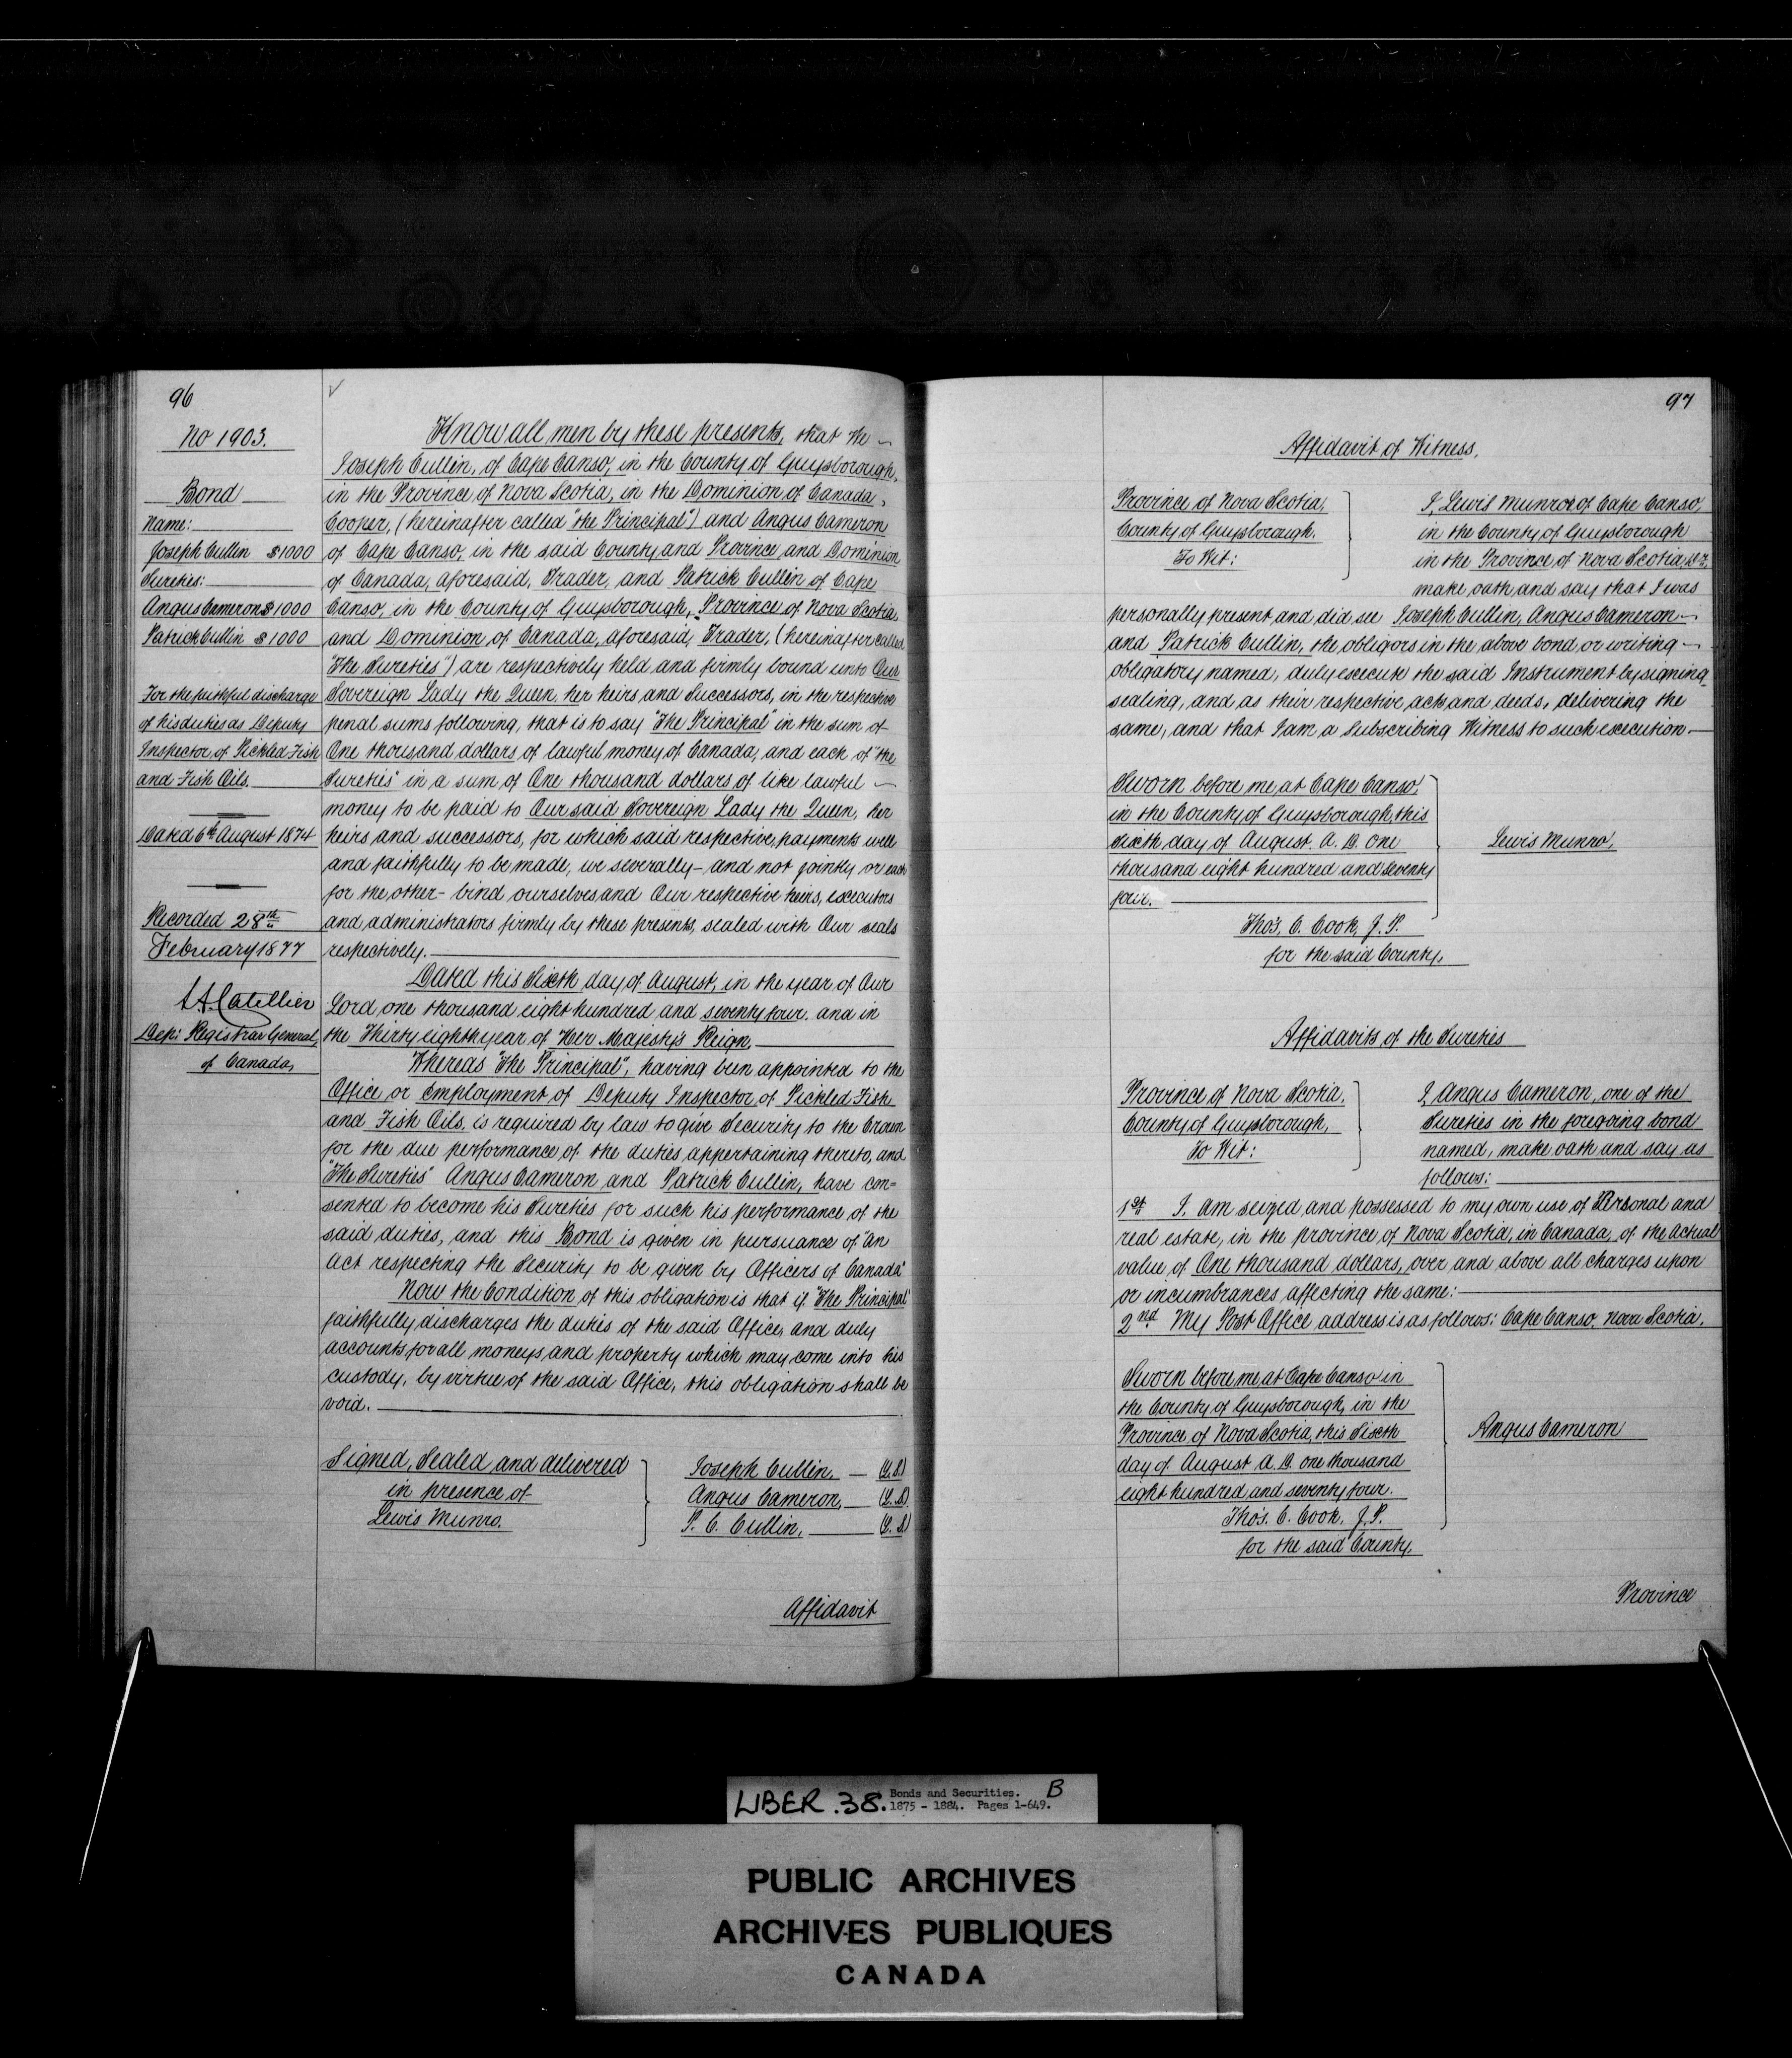 96
No 1903.
Bond
Name:
Joseph Cullin $1000
Sureties:
Angus Cameron $1000
Patrick Cullin $1000
For the faithful discharge
of his duties as Deputy
Inspector of Pickled Fish
and Fish Oils.
Dated 6th August 1874
Recorded 28th
February 1877
L.A. Catellier
Dep: Registrar General,
of Canada,
Know all men by these presents, that We
Joseph Cullin, of Cape Canso, in the County of Guysborough,
in the Province of Nova Scotia, in the Dominion of Canada,
Cooper, (hereinafter called "the Principal") and Angus Cameron
of Cape Canso, in the said County, and Province, and Dominion
of Canada, aforesaid, Trader, and Patrick Cullin of Cape
Canso, in the County of Guysborough, Province of Nova Scotia,
and Dominion of Canada, aforesaid, Trader, (hereinafter called
"The Sureties") are respectively held and firmly bound unto Our
Sovereign Lady the Queen, her heirs and Successors, in the respective
penal sums following, that is to say "The Principal" in the sum of
One thousand dollars of lawful money of Canada, and each of "the
Sureties" in a sum of One thousand dollars of like lawful
money to be paid to Our said Sovereign Lady the Queen, her
heirs and successors, for which said respective, payments well
and faithfully to be made, we severally – and not jointly or each
for the other – bind ourselves, and Our respective heirs, executors
and administrators firmly by these presents, sealed with Our seals
respectively.
Dated this Sixth day of August, in the year of Our
Lord, one thousand eight hundred and seventy four. and in
the Thirty eighth year of Her Majesty's Reign,
Whereas "The Principal", having been appointed to the
Office or Employment of Deputy Inspector of Pickled Fish
and Fish Oils, is required by law to give Security to the Crown
for the due performance of the duties appertaining thereto, and
"The Sureties" Angus Cameron and Patrick Cullin, have con=
sented to become his Sureties for such his performance of the
said duties, and this Bond is given in pursuance of "An
Act respecting the Security to be given by Officers of Canada"
Now the Condition of this obligation is that if "The Principal"
faithfully discharges the duties of the said Office, and duly
accounts for all moneys, and property which may come into his
custody, by virtue of the said Office, this obligation shall be
void.
Signed, Sealed and delivered
in presence of
Lewis Munro.
Joseph Cullin, – (L.S.)
Angus Cameron, – (L.S.)
P. C. Cullin, – (L.S.)
Affidavit
97
Affidavit of Witness,
Province of Nova Scotia,
County of Guysborough.
To Wit:
I, Lewis Munro of Cape Canso,
in the County of Guysborough
in the Province of Nova Scotia,
make oath and say that I was
personally present, and did see Joseph Cullin, Angus Cameron
and Patrick Cullin, the obligors in the above bond or writing
obligatory named, duly execute the said Instrument by signing,
sealing, and as their respective acts and deeds, delivering the
same, and that I am a Subscribing Witness to such execution.
Sworn before me at Cape Canso,
in the County of Guysborough this
Sixth day of August. A. D. One
thousand eight hundred and seventy
four.
Lewis Munro,
Thos, C. Cook, J. P.
for the said County,
Affidavits of the Sureties
Province of Nova Scotia.
County of Guysborough,
To Wit:
I, Angus Cameron, one of the
Sureties in the foregoing bond
named, make oath and say as
follows:
1st I. Am seized and possessed to my own use of Personal and
real estate, in the province of Nova Scotia, in Canada, of the Actual
value of One thousand dollars, over and above all charges upon
or incumbrances affecting the same:
2nd My Post Office address is as follows: Cape Canso, Nova Scotia.
Sworn before me at Cape Canso in
the County of Guysborough, in the
Province of Nova Scotia, this Sixth
day of August A. D. one thousand
eight hundred and seventy four.
Angus Cameron
Thos. C. Cook, J. P.
for the said County,
Province
LIBER.38. Bonds and Securities. B
1875 - 1884. Pages 1-649.
PUBLIC ARCHIVES
ARCHIVES PUBLIQUES
CANADA